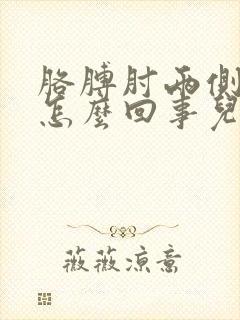 胳膊肘两側
怎麼回事兒
薇薇凉意